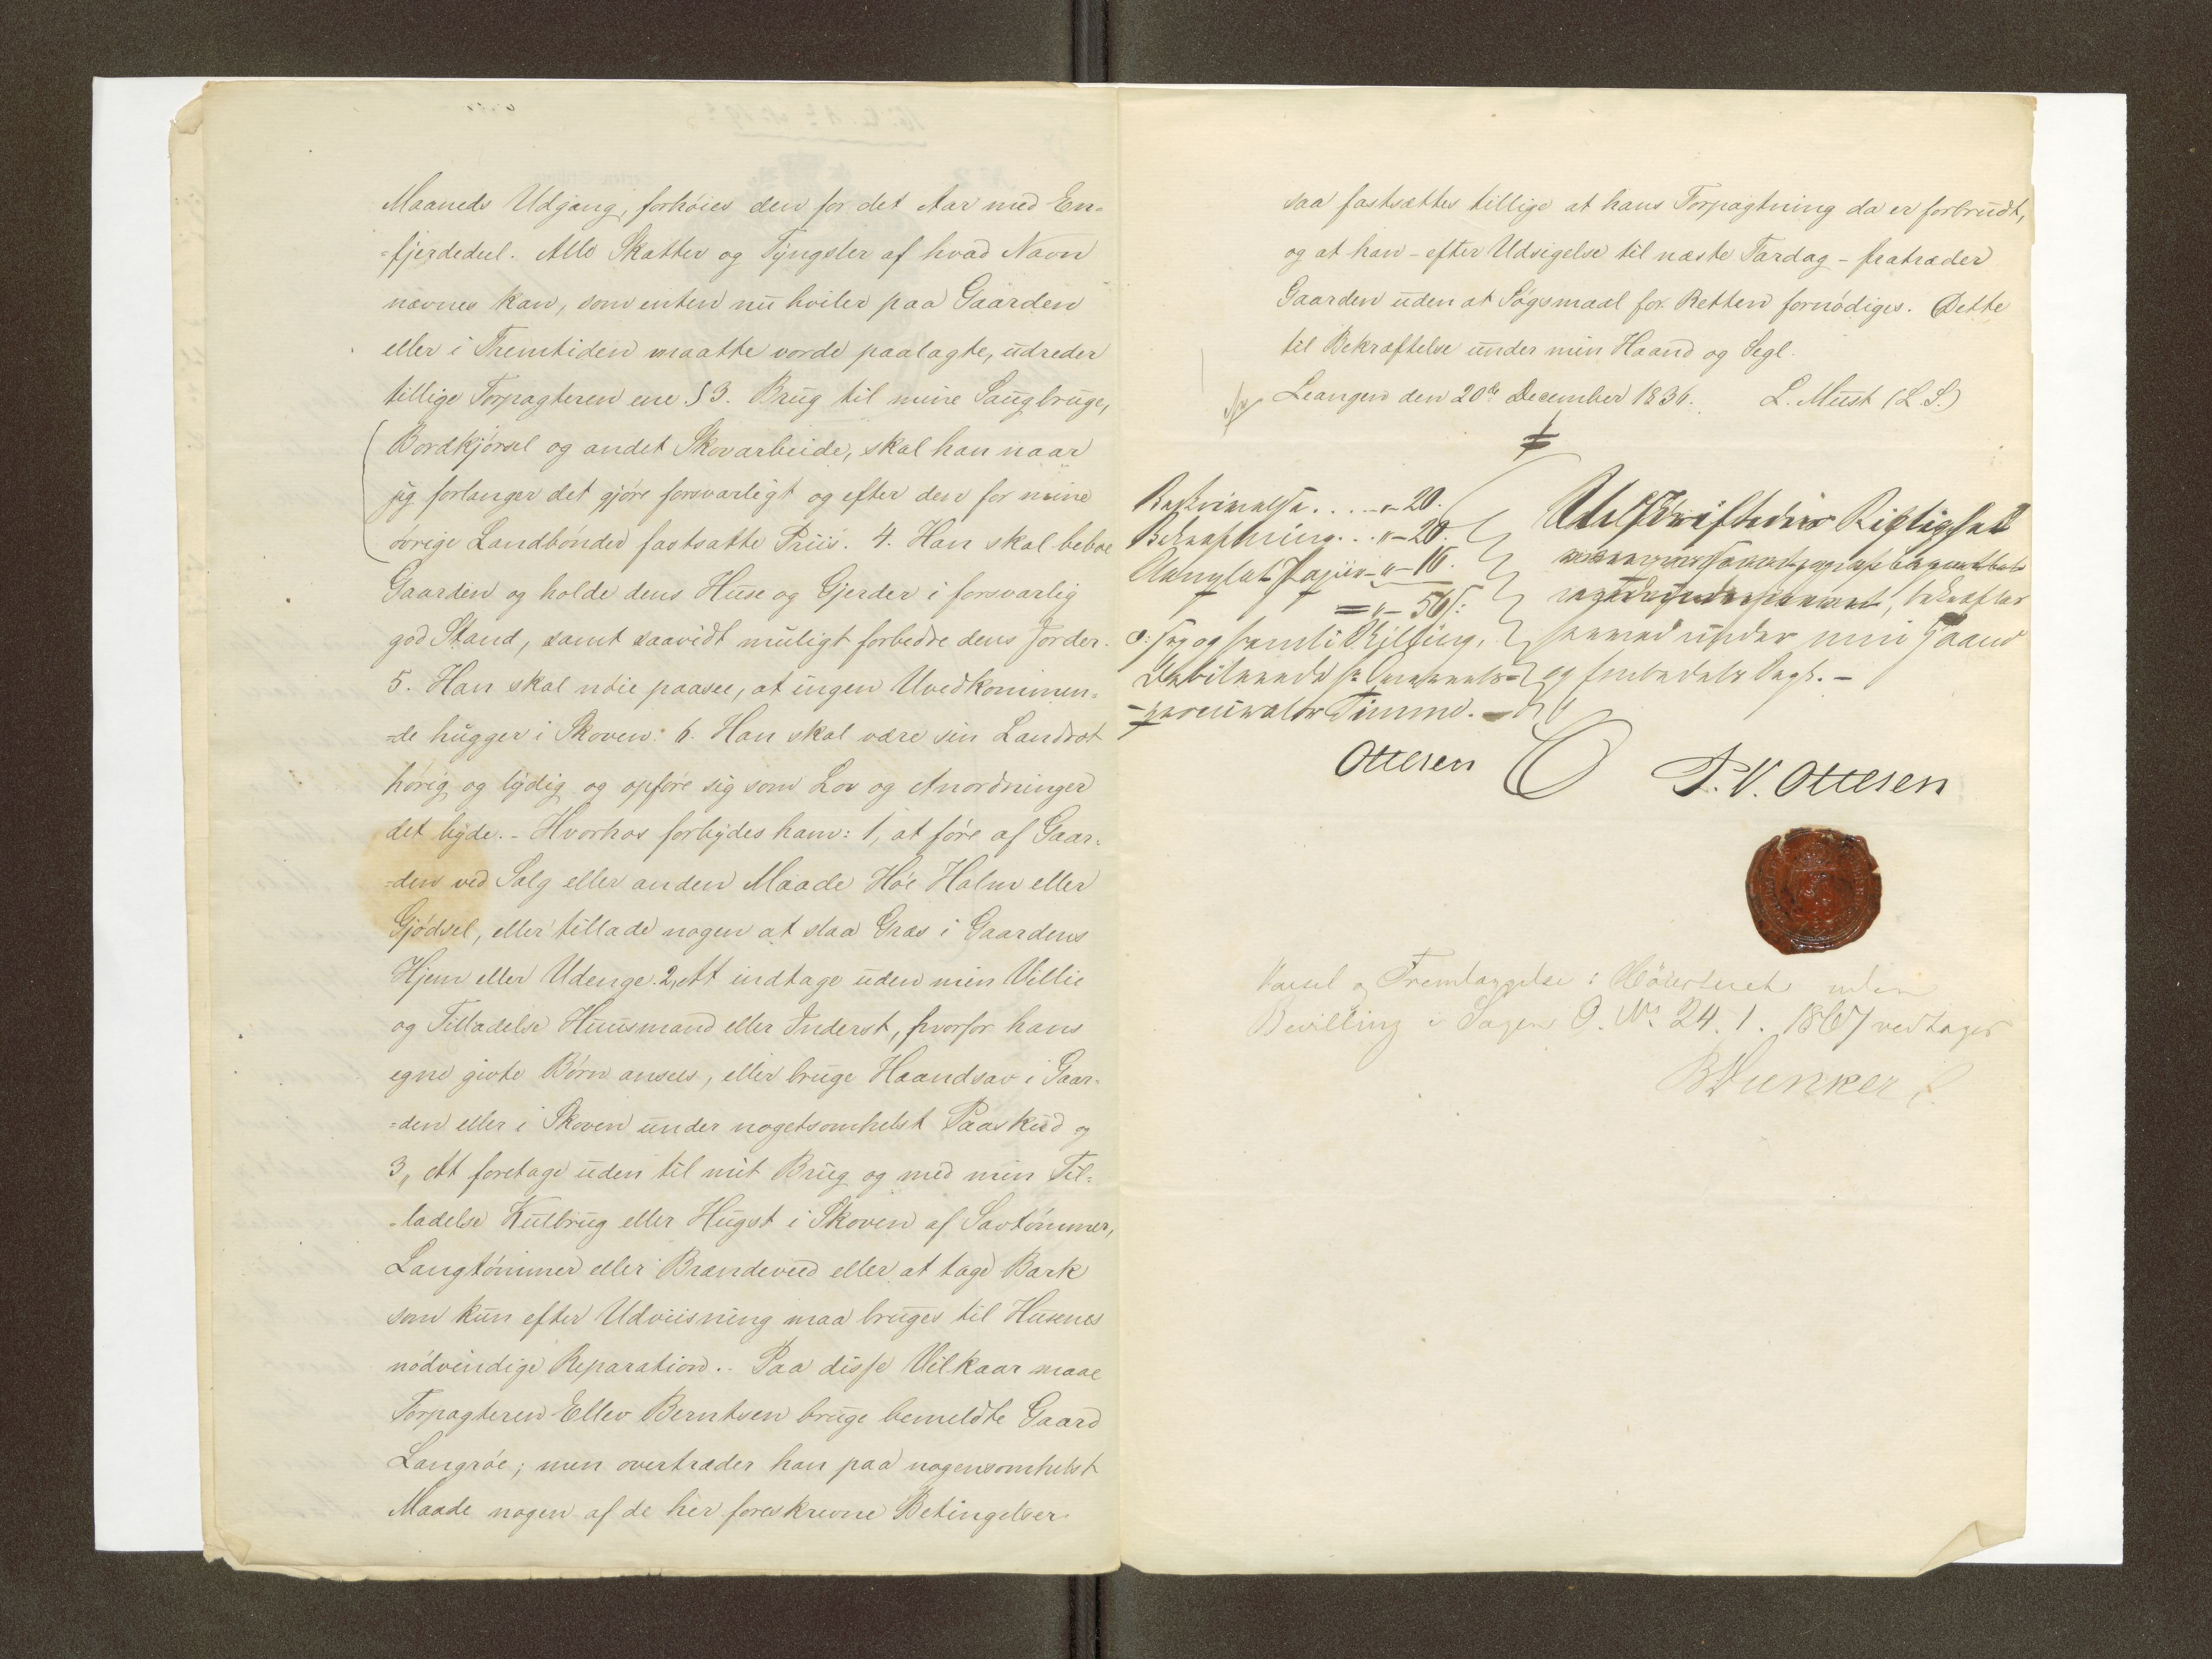 Maaneds Udgang, forhöies den for det Aar med En=
=fjerdedeel. Alle Skatter og Tyngsler af hvad Navn
nævnes kan, som enten nu hviler paa Gaarden
eller i Fremtiden maatte vorde paalagte, udreder
tillige Forpagteren ene. § 3. Brug til mine Saugbruge,
Bordkjörsel og andet Skovarbeide, skal han naar
jeg forlanger det gjöre forsvarligt og efter den for mine
övrige Landbönder fastsatte Priis. 4. Han skal beboe
Gaarden og holde dens Huse og Gjerder i forsvarlig
god Stand, samt saavidt muligt forbedre dens Jorder.
5. Han skal nöie paasee, at ingen Uvedkommen=
=de hugger i Skoven: 6. Han skal være sin Landdrot
hörig og lydig og opföre sig som Lov og Anordninger
det byde. - Hvorhos forbydes ham: 1, at före af Gaar=
=den ved Salg eller anden Maade Höe Halm eller
Gjödsel, eller tillade nogen at slaa Græs i Gaardens
Hjem eller Udenge. 2, At indtage uden min Villie
og Tilladelse Huusmand eller Inderst, hvorfor hans
egne givte Börn ansees, eller bruge Haandsav i Gaar=
=den eller i Skoven under nogetsomhelst Paaskud og
3, At foretage uden til mit Brug og med min Til=
=ladelse Kulbrug eller Hugst i Skoven af Savtömmer,
Langtömmer eller Brændeveed eller at tage Bark
som kun efter Udviisning maa bruges til Husenes
nödvendige Reparation.. Paa disse Vilkaar maae
Forpagteren Ellev Berntsen bruge bemeldte Gaard
Langröe; men overtræder han paa nogensomhelst
Maade nogen af de her foreskrevne Betingelser
saa fastsættes tillige at hans Forpagtning da er forbrudt,
og at han - efter Udsigelse til næste Fardag - fratræder
Gaarden uden at Sögsmaal for Retten fornödiges. Dette
til Bekræftelse under min Haand og Segl.
Leangen den 20de December 1836. L. Must (L.S.)
Beskrivelse . . . . „- 20.
Bekræftning . . „- 20.
Stemplet Papiir - „- 16.
= „- 56 s:
o: sex og femti Skilling,
Debiteret
procurator Thimme. -
Ottesen
Udskriftens Rigtighed
bekræfter
under min Haand
og Embeds Segl. -
P. V. Ottesen
Varsel og Fremlæggelse i Höiesteret uden
Bevilling i Sagen O. No 24. 1. 1867 vedtages
B Dunker